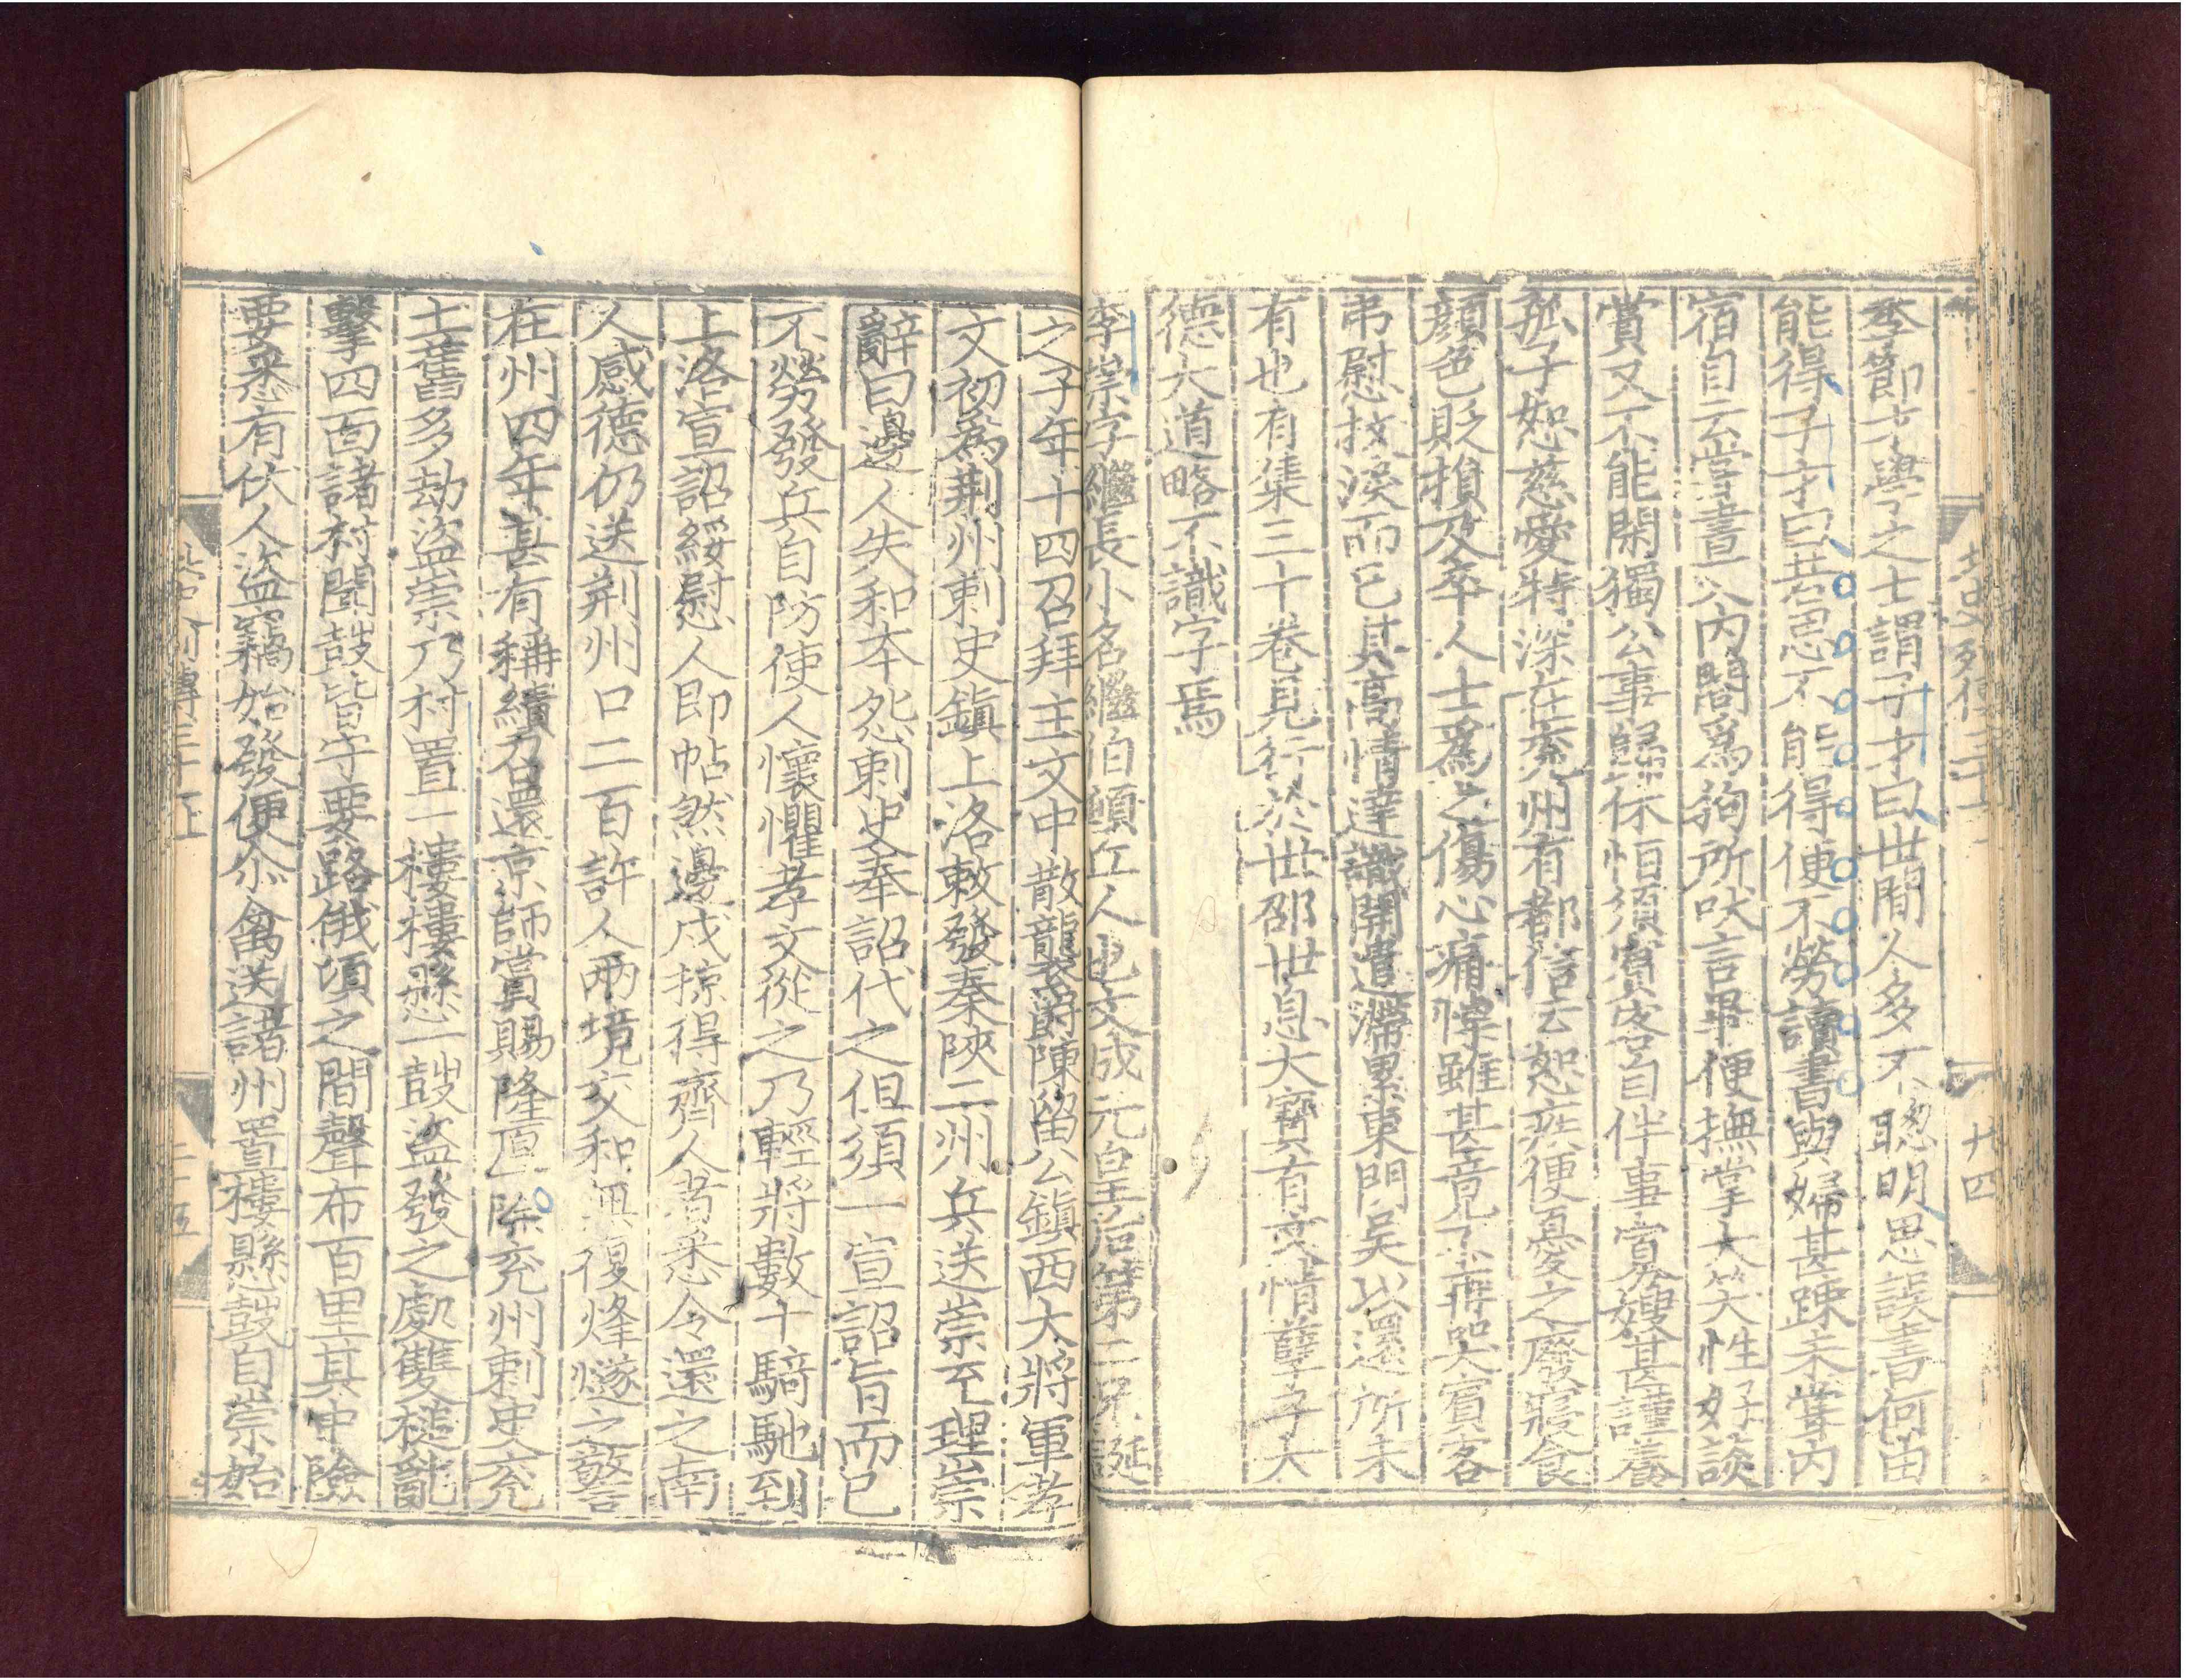 季節才學之士謂子才曰世間人多不聰明思誤書何由
能得子才曰若思不能得便不勞讀書與婦甚踈未嘗內
宿自云嘗晝入內閤爲狗所吠言畢便撫掌大笑性好談
賞又不能閑獨公事歸休恒須賓客自伴事寡嫂甚謹養
孤子恕慈愛特深在兗州有都信云恕疾便憂之廢寢食
顏色貶損及卒人士爲之傷心痛悼雖甚竟不再哭賓客
弔慰抆淚而已其高情達識開遣滯累東門吳以還所未
有也有集三十卷見行於世邵世息大寶有文情孽子大
德大道略不識字焉
李崇字繼長小名繼伯頓丘人也文成元皇后第二兄誕
之子年十四召拜主文中散襲爵陳留公鎮西大將軍孝
文初爲荆州刺史鎮上洛敕發秦陝二州兵送崇至理崇
辭曰邊人失和本怨刺史奉詔代之但須一宣詔旨而已
不勞發兵自防使人懷懼孝文從之乃輕將數十騎馳到
上洛宣詔綏慰人即帖然邊戍掠得齊人者悉令還之南
人感德仍送荆州口二百許人兩境交和無復烽燧之警
在州四年甚有稱績召還京師賞賜隆厚除兗州刺史兗
土舊多劫盜崇乃村置一樓樓懸一鼓盜發之處雙槌亂
擊四面諸村聞鼓皆守要路俄頃之間聲布百里其中險
要悉有伏人盜竊始發便尒禽送諸州置樓懸鼓自崇始
北史列傳三十一
廿四
列傳三十一
二十五